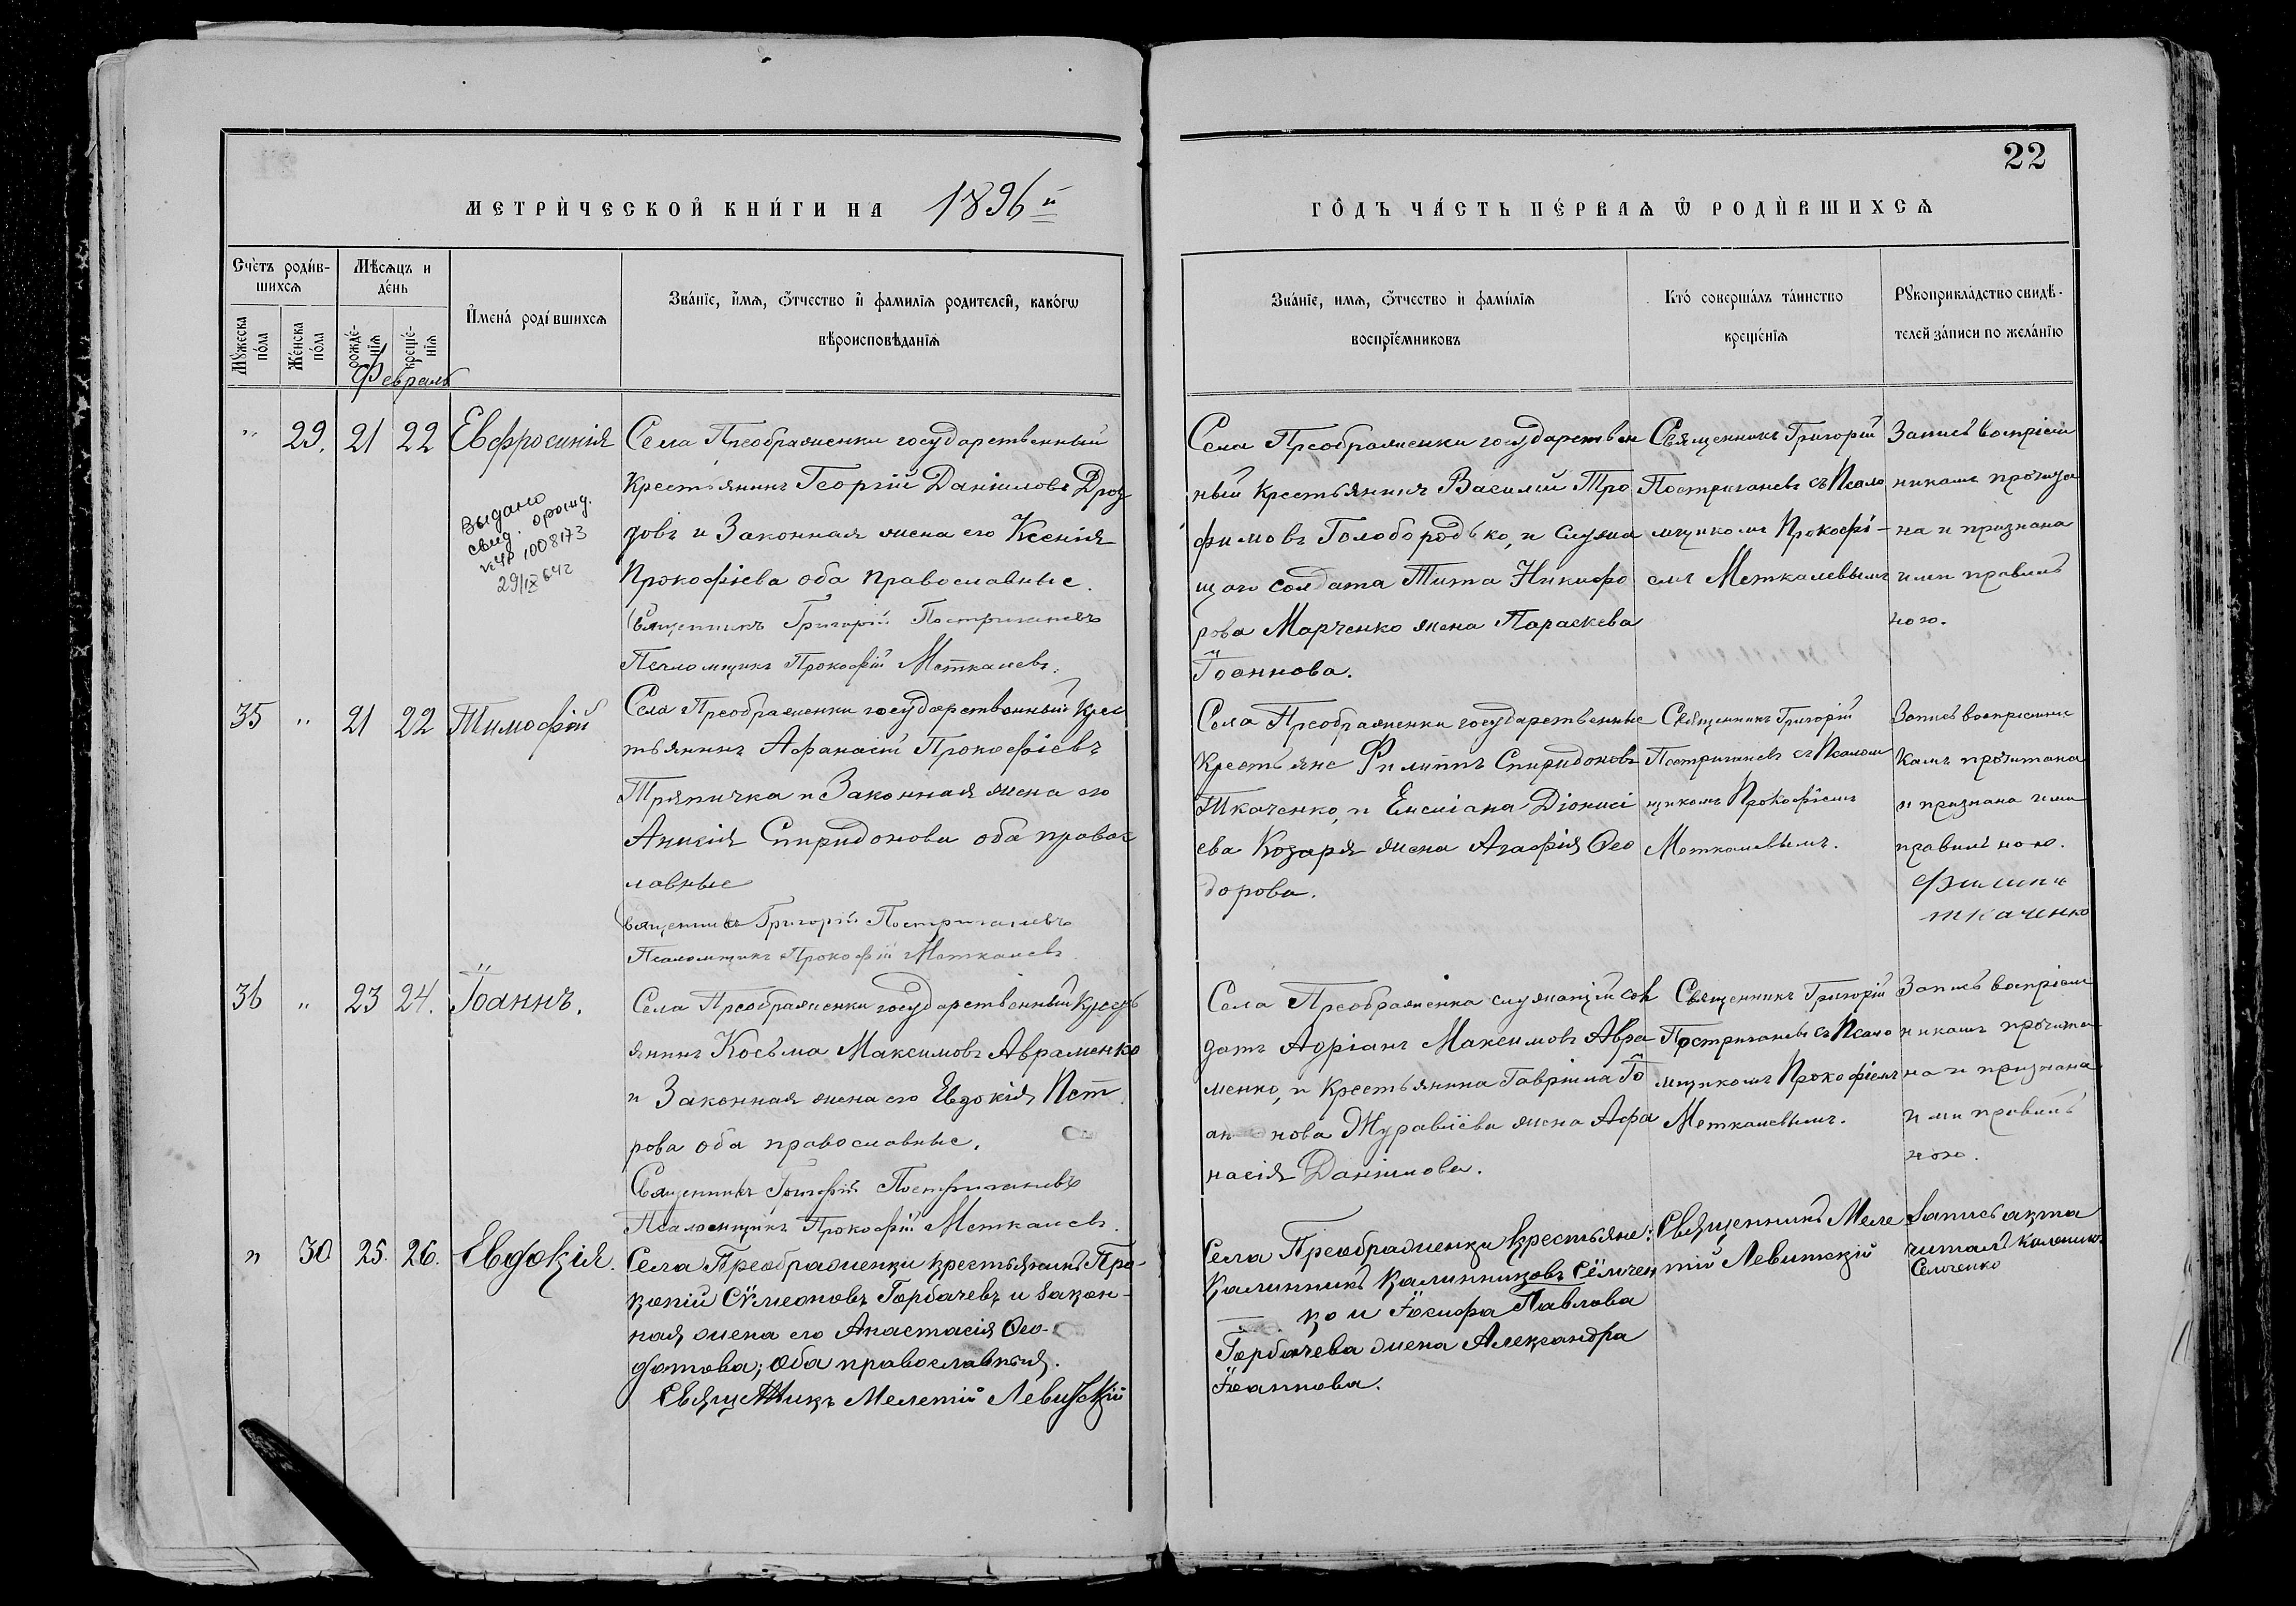 22
МЕТРИ́ЧЕСКОЙ КНИ́ГИ НА 1896й
ГО́ДЪ ЧА́СТЬ ПЕ́РВАѦ Ѽ РОДИ́ВШИХСѦ
Сче́тъ роди́в-
шихсѧ
Мѣсѧцъ и
де́нь
Мꙋжеска
по́ла
Же́нска
по́ла
рожде́-
нїѧ
креще́-
нїѧ
И҆мена́ роди́вшихсѧ
Зва́нїе, и҆́мѧ, ѻ҆́тчество и҆ фамилїѧ родителей, како́гѡ
вѣроисповѣданїѧ
Зва́нїе, имѧ, ѻ҆́тчество и҆ фами́лїѧ
воспрїе́мниковъ
Кто́ соверша́лъ та́инство
креще́нїѧ
Рꙋкоприкла́дство свидѣ́-
телей за́писи по жела́нїю
Февраль
" 29. 21 22 Евфросинія
Выдано
свид. о рожд.
1008173
29/IX 64г
Села Преображенки государственный
Крестьянинъ Георгій Даніиловъ Дроз
довъ и Законная жена его Ксенія
Прокофіева оба православные.
Священникъ Григорій Постригановъ
Псаломщикъ Прокофій Меткалевъ.
Села Преображенки государствен
ный Крестьянинъ Василий Тро
фимовъ Голобородько, и служа
щаго солдата Тита Никифо
рова Марченко жена Параскева
Іоаннова.
Священникъ Григорій
Постригановъ съ Псало
мщикомъ Прокофі-
емъ Меткалевымъ
Запись воспріем
никамъ прочита
на и признана
ими правиль
ною.
35 " 21 22 Тимофѣй
Села Преображенки государственный Крес
тьянинъ Афанасій Прокофіевъ
Тряпичка и Законная жена его
Анисія Спиридонова оба правос
лавные
Священникъ Григорій Постригановъ
Псаломщикъ Прокофій Меткалевъ
Села Преображенки государственные
Крестьяне Филиппъ Спиридоновъ
Ткаченко, и Емеліана Діонисі
ева Козаря жена Агафія Ѳео
дорова.
Священникъ Григорій
Постригановъ съ Псалом
щикомъ Прокофіемъ
Меткалевымъ.
Запись воспріемни
камъ прочитана
и признана ими
правильною.
Филипъ
ткаченко
36 " 23 24. Іоаннъ.
Села Преображенки государственный Кресть
янинъ Косьма Максимовъ Авраменко
и Законная жена его Евдокія Пет
рова оба православные.
Священникъ Григорій Постригановъ
Псаломщикъ Прокофій Меткалевъ.
Села Преображенка служащій сол
датъ Адріанъ Максимовъ Авра
менко, и Крестьянина Гавріила Іо
ан нова Журавлева жена Афа
насія Даніилова.
Священникъ Григорій
Постригановъ съ Псало
мщикомъ Прокофіемъ
Меткалевымъ.
Запись воспріем
никамъ прочита
на и признана
ими правиль
ною.
" 30 25. 26. Евдокія.
Села Преображенки крестьянинъ Про-
копій Сѵмеоновъ Горбачевъ и закон-
ная жена его Анастасія Ѳео-
дотова; оба православныя.
Священникъ Мелетій Левитскій
Села Преображенки крестьяне:
Калинникъ Калинниковъ Сёмчен
ко и Іосифа Павлова
Горбачева жена Александра
Іоаннова.
Священникъ Меле
тій Левитскій
Запись акта
читалъ Калинник
Семченко